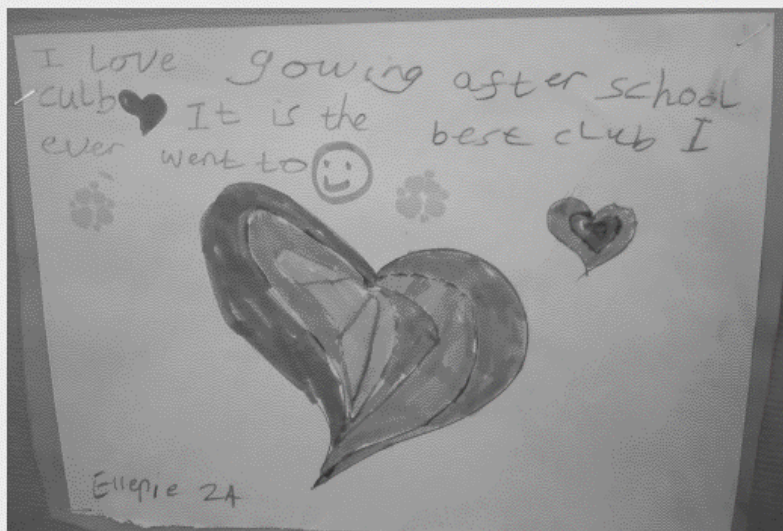 I love gowing after school
culb It is the best club I
ever went to
Ellepie 2A